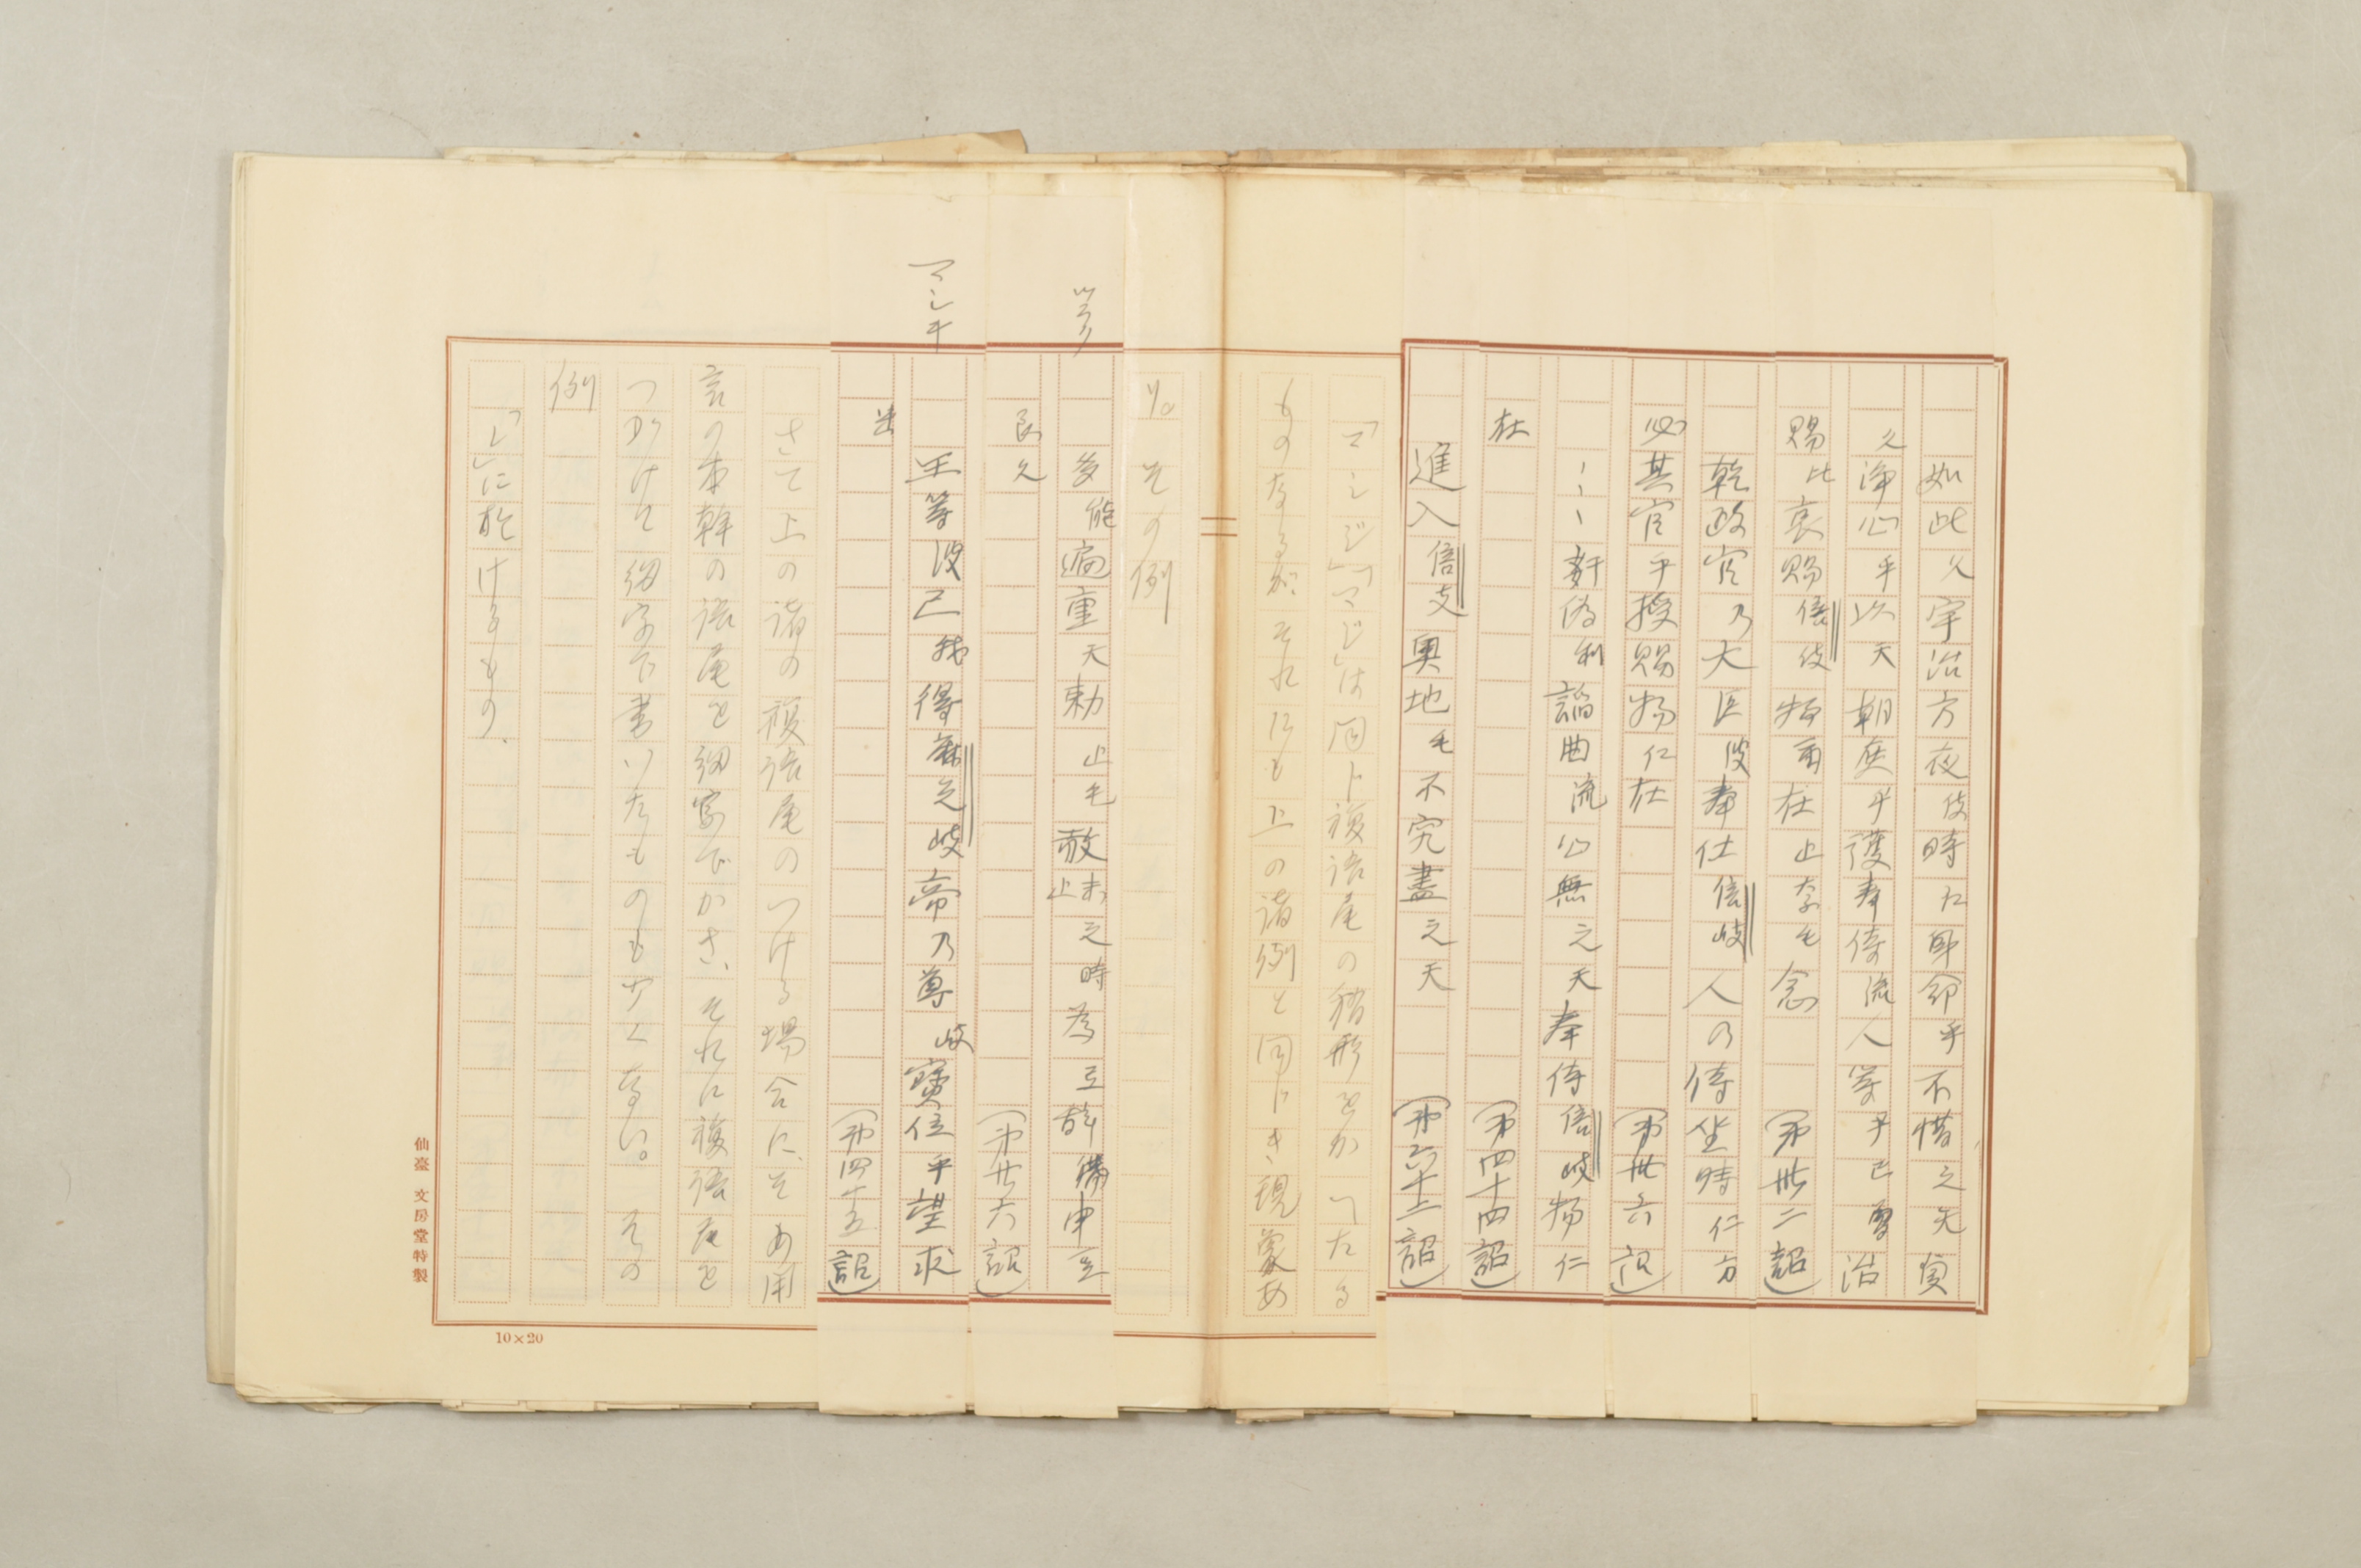 如此久宇治方夜伎時仁身命乎不惜之天貞
久浄心乎以天朝庭乎護奉侍流人等乎己曽治
賜比哀賜倍伎物爾在止奈毛念 (第卅二詔)
乾政官乃大臣波奉仕倍岐人乃侍坐時仁方
必其官乎授賜物仁在 (第卅六詔)
奸偽利諂曲流心無之天奉侍倍岐物仁
在 (第四十四詔)
進入倍支奥地毛不究盡之天 (第六十二詔)
「マシジ」「マジ」は同ト複語尾の略形とかへたる
ものなるが、それにも上の諸例と同じき現象あ
り。その例
多能遍重天勅止毛敢末之時止為弖辞備申豆
良久 (第廿六詔)
王等波己我得麻之岐帝乃尊岐寶位乎望求
(第四十五詔)
マシキ
さて上の諸の複語尾のつける場合に、その用
言の本幹の語尾を細字でかき、それに複語尾を
つゞけて細字で書いたものも少くない。その
例
「シ」に於けるもの、
仙臺 文房堂特製
10×20